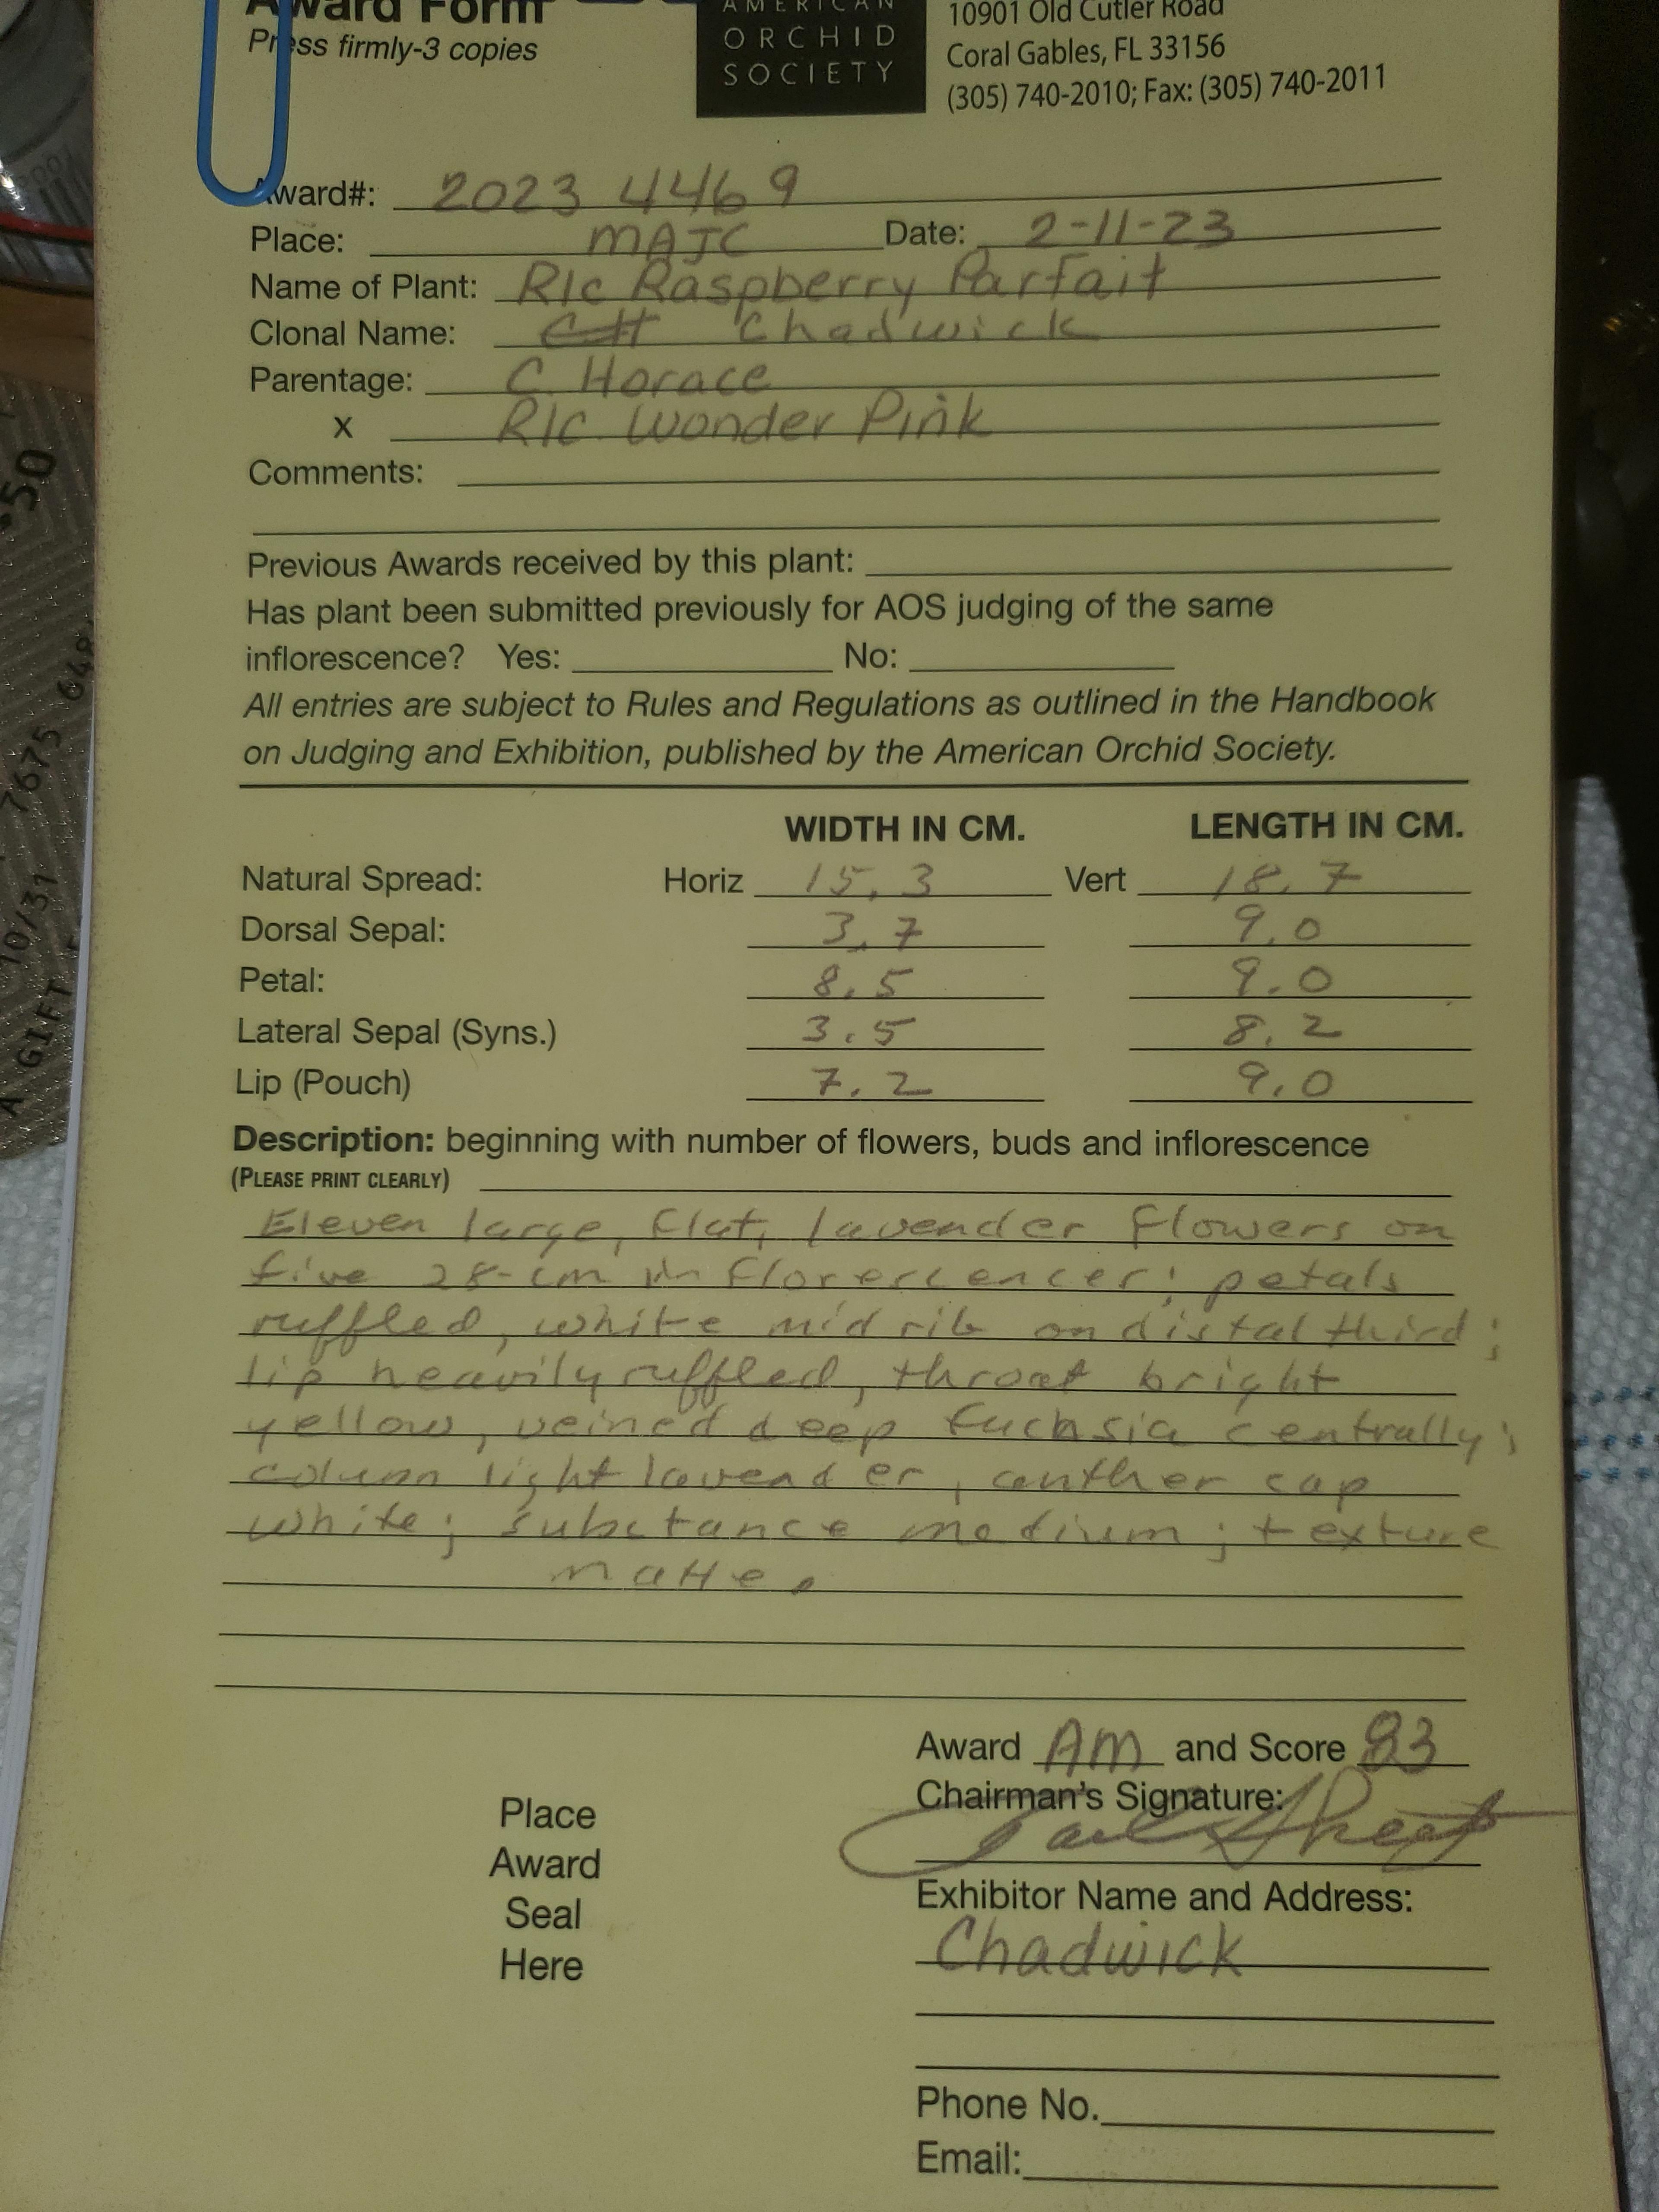 Award Form
Press firmly-3 copies
AMERICAN
ORCHID
SOCIETY
10901 Old Cutler Road
Coral Gables, FL 33156
(305) 740-2010; Fax: (305) 740-2011
Award#: 2023 4469
Place: MAJC Date: 2-11-23
Name of Plant: Rlc Raspberry Parfait
Clonal Name: Chadwick
Parentage: C. Horace
x Rlc. Wonder Pink
Comments:
Previous Awards received by this plant:
Has plant been submitted previously for AOS judging of the same
inflorescence? Yes: No:
All entries are subject to Rules and Regulations as outlined in the Handbook
on Judging and Exhibition, published by the American Orchid Society.
WIDTH IN CM. LENGTH IN CM.
Natural Spread: Horiz 15.3 Vert 18.7
Dorsal Sepal: 3.7 9.0
Petal: 8.5 9.0
Lateral Sepal (Syns.) 3.5 8.2
Lip (Pouch) 7.2 9.0
Description: beginning with number of flowers, buds and inflorescence
(PLEASE PRINT CLEARLY)
Eleven large, flat, lavender flowers on
five 28-cm inflorescences; petals
ruffled, white midrib on distal third;
lip heavily ruffled, throat bright
yellow, veined deep fuchsia centrally;
column light lavender, anther cap
white; substance medium; texture
matte.
Award AM and Score 83
Chairman's Signature:
Exhibitor Name and Address:
Chadwick
Place
Award
Seal
Here
Phone No.
Email:
50
7675 648
10/31
A GIFT